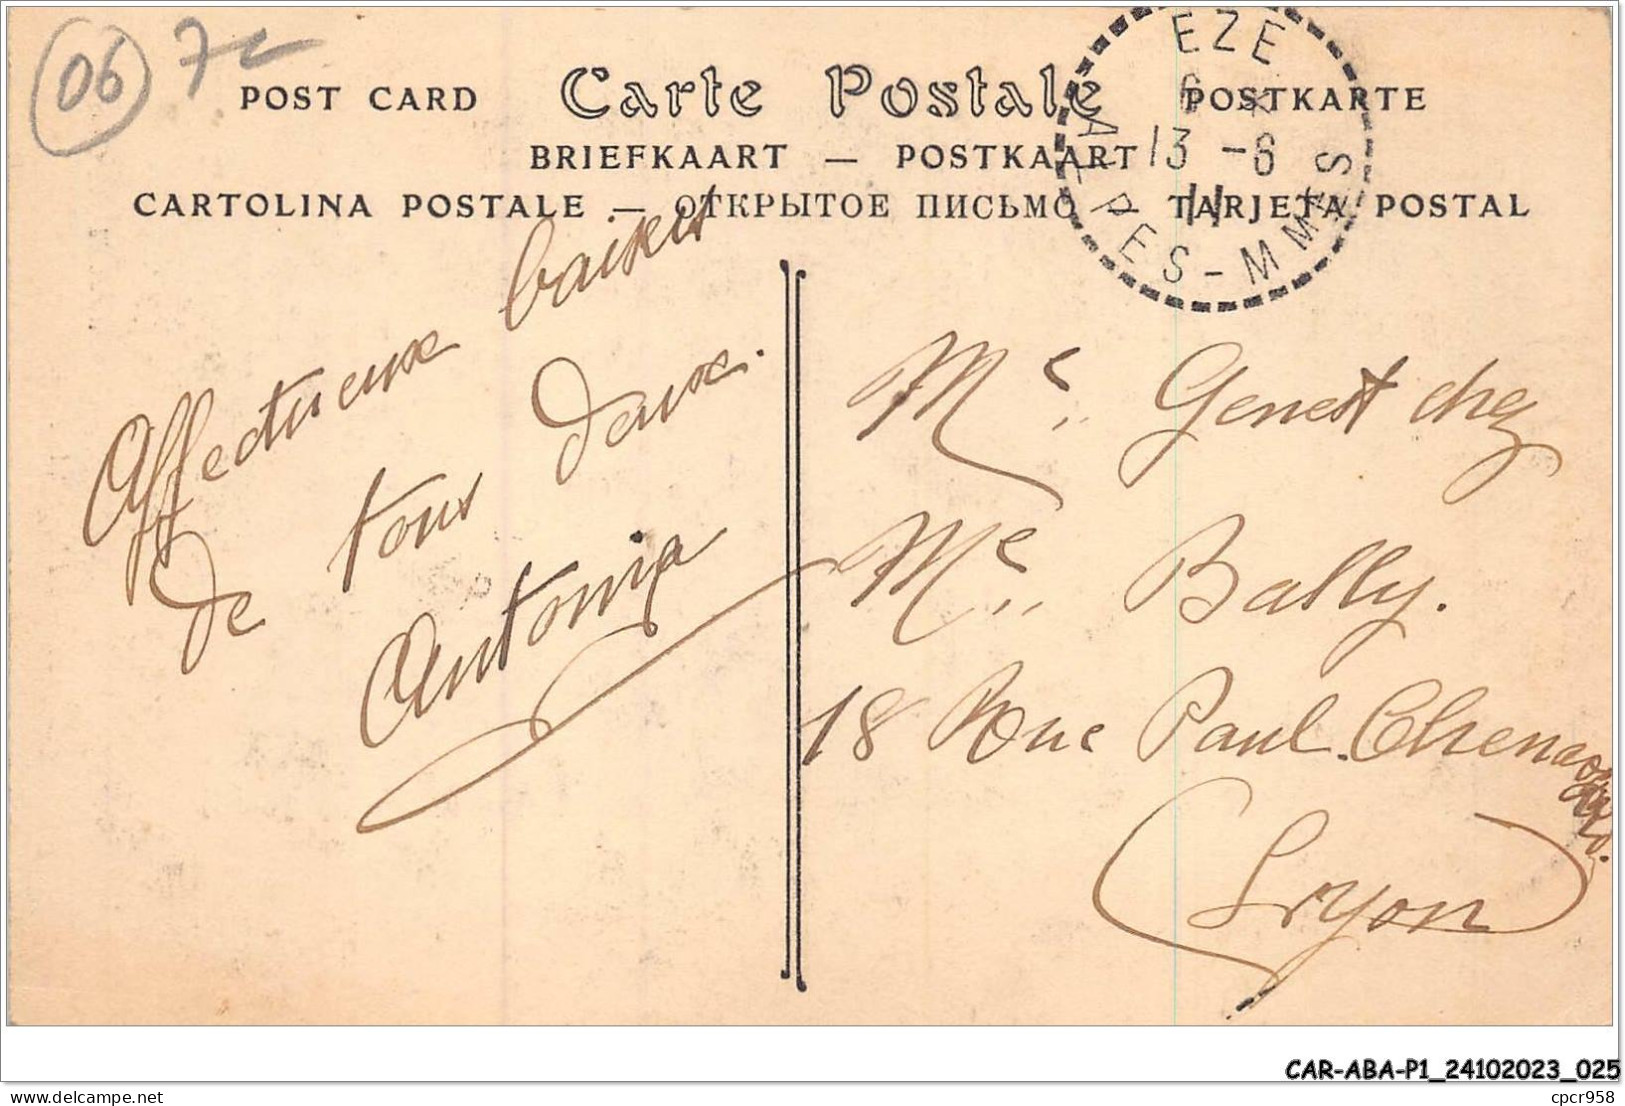 06 7c
POST CARD Carte Postale POSTKARTE
BRIEFKAART — POSTKAART
CARTOLINA POSTALE — ОТКРЫТОЕ ПИСЬМО — TARJETA POSTAL
EZE
6
13 - 6
11
ALPES-MMES
Affectueux baisers
de tous deux.
Antonia
Me Genest chez
Me Bally.
18 Rue Paul Chenavard.
Lyon
CAR-ABA-P1_24102023_025
delcampe.net
cpcr958